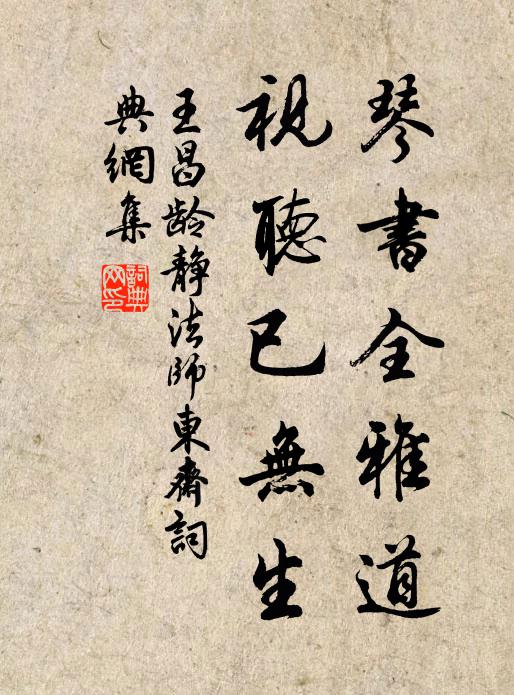 琴書全雅道
視聽已無生
王昌齡靜法師東齋詞
典網集
詞典網印